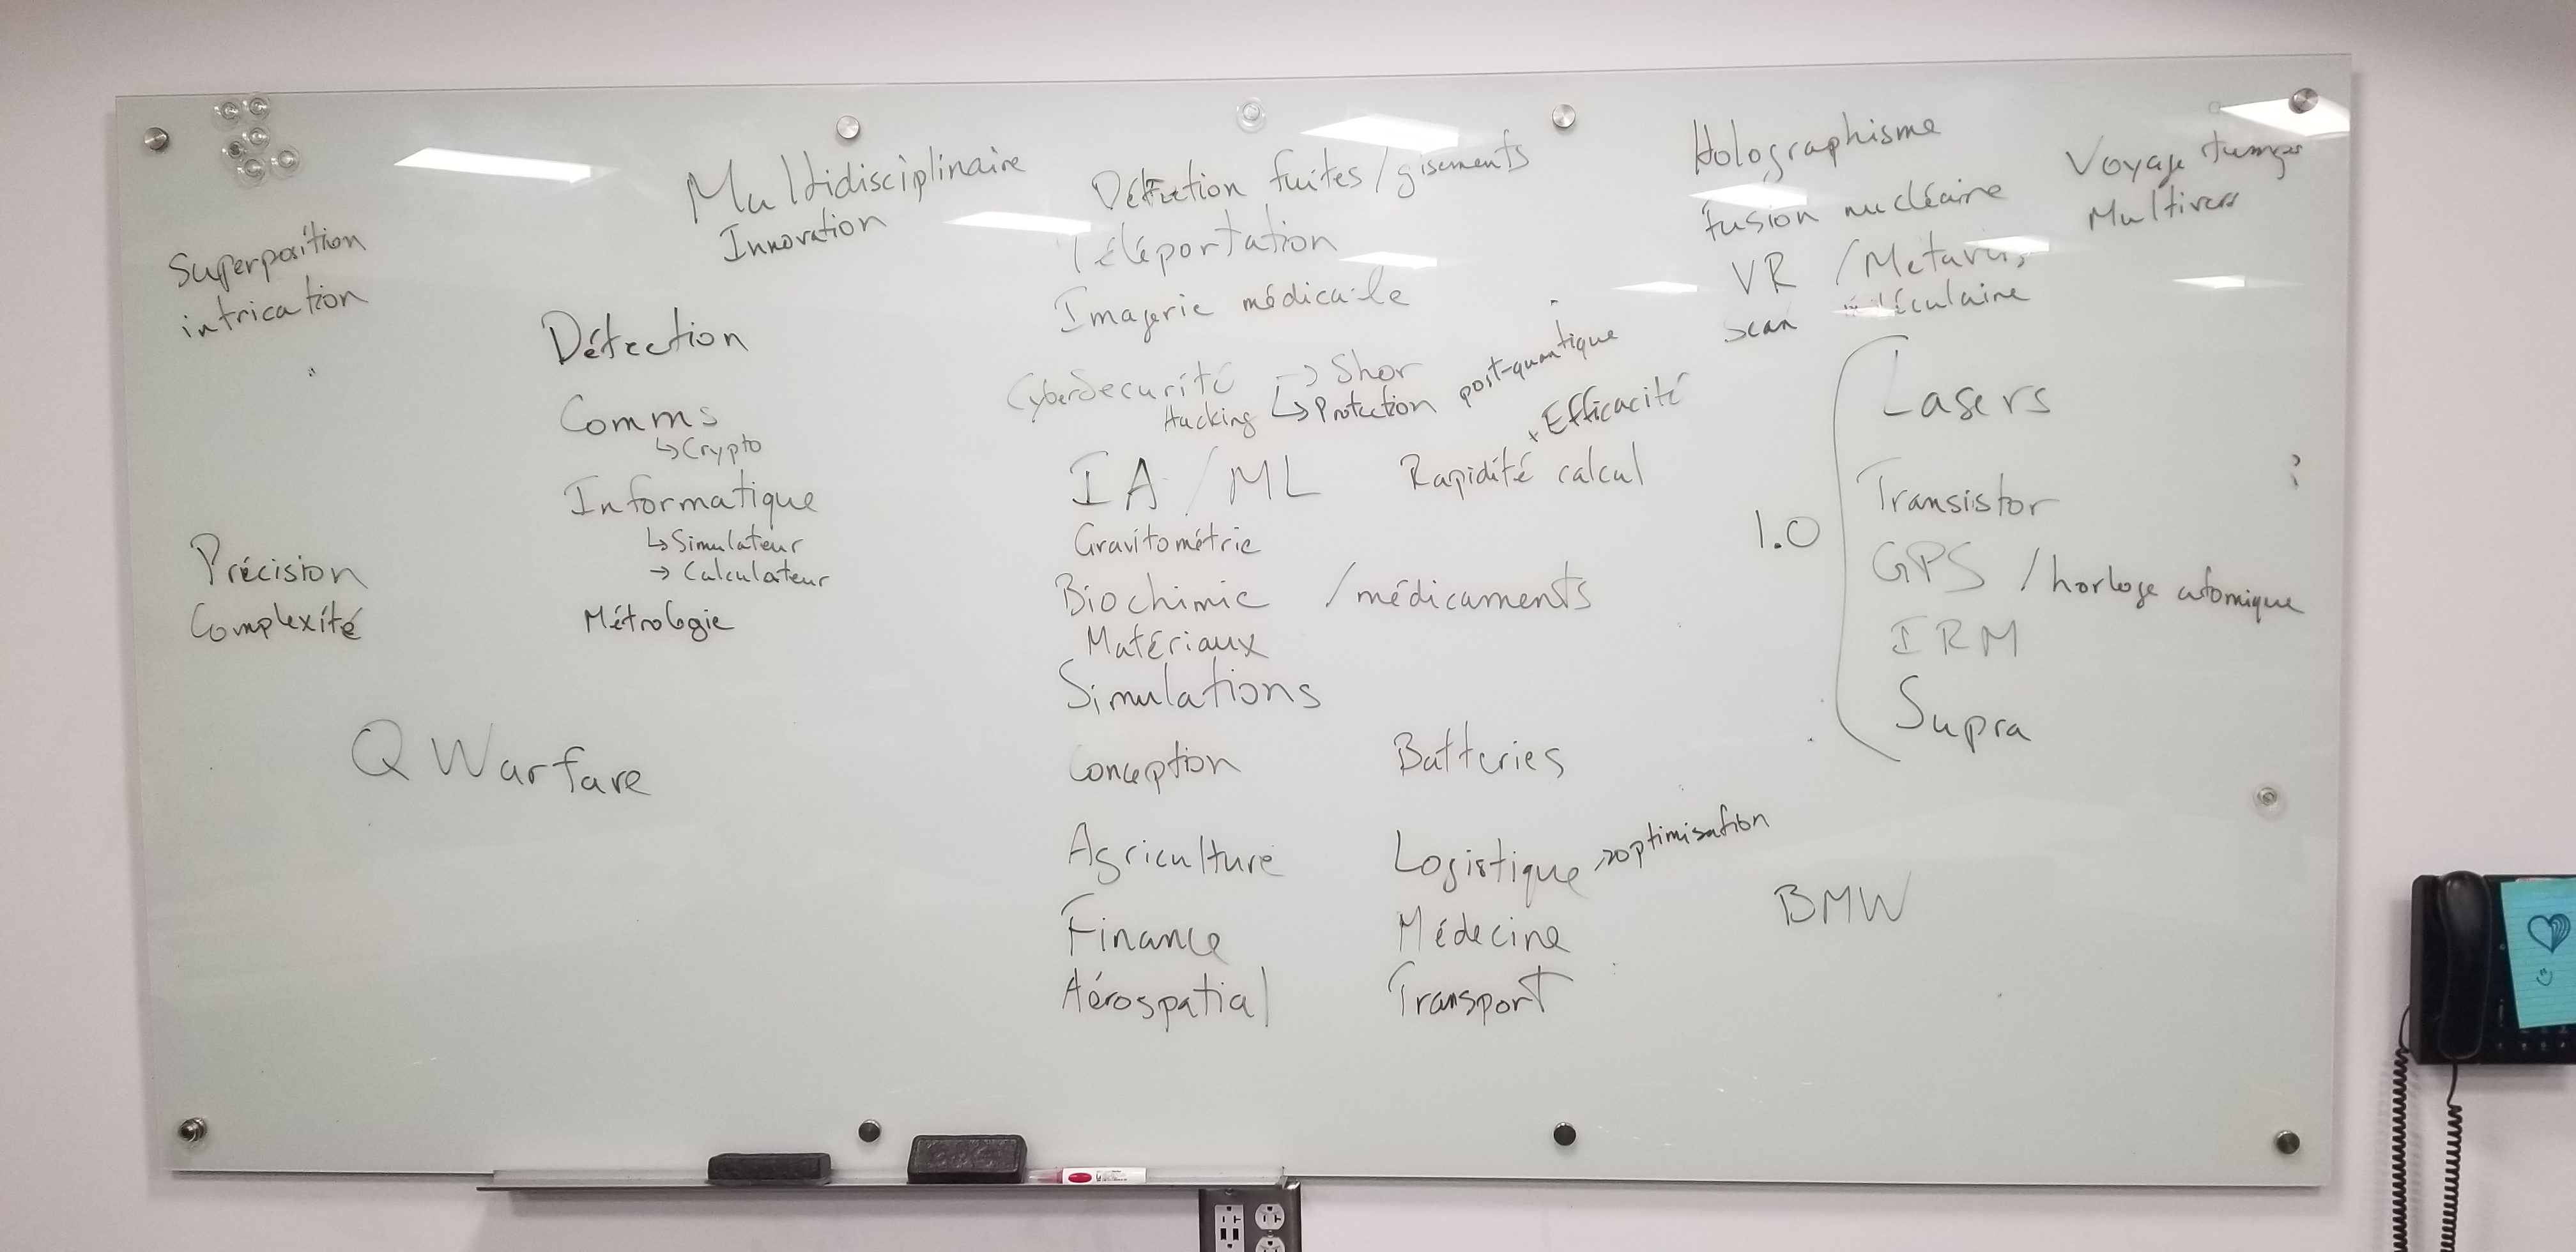 Superposition
intrication
Précision
Complexité
Q Warfare
Multidisciplinaire
Innovation
Détection
Comms
↳ Crypto
Informatique
↳ Simulateur
→ Calculateur
Métrologie
Détection fuites / gisements
Téléportation
Imagerie médicale
Cybersécurité → Shor
Hacking ↳ Protection post-quantique
+ Efficacité
IA / ML Rapidité calcul
Gravitométrie
Biochimie / médicaments
Matériaux
Simulations
Conception Batteries
Agriculture Logistique → optimisation
Finance Médecine
Aérospatial Transport
BMW
Holographisme
fusion nucléaire
VR / Metavers
Scan moléculaire
Voyage temps
Multivers
1.0
Lasers
Transistor
GPS / horloge atomique
IRM
Supra
?